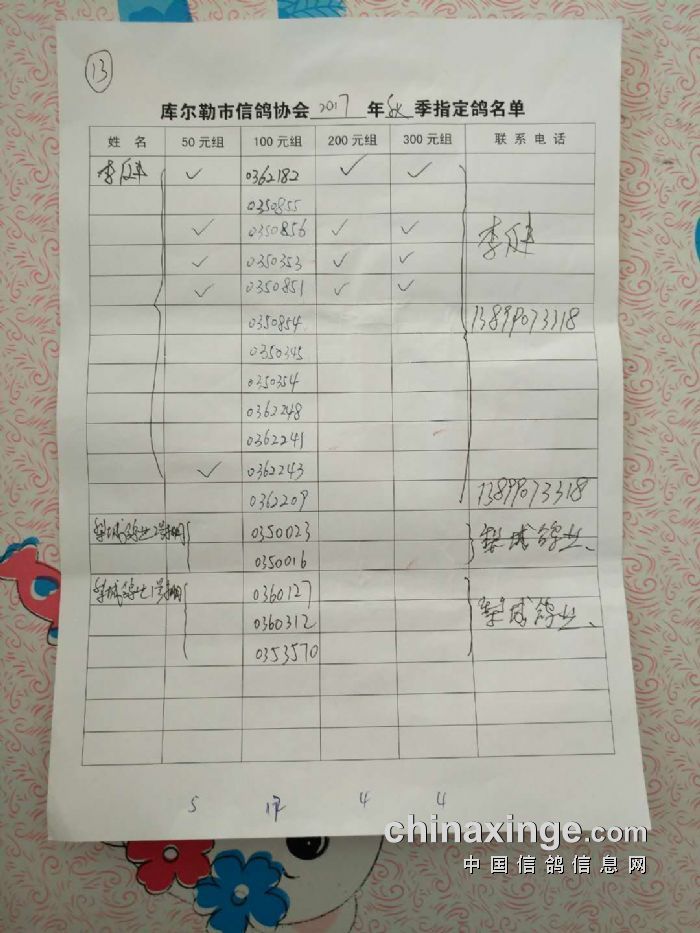 13
库尔勒市信鸽协会 2017 年 秋 季指定鸽名单
姓 名 50 元组 100 元组 200 元组 300 元组 联 系 电 话
李健 ✓ 0362182 ✓ ✓
0350855
✓ 0350856 ✓ ✓ 李健
✓ 0350353 ✓ ✓
✓ 0350851 ✓ ✓
0350854 13899073318
0350345
0350354
0362248
0362241
✓ 0362243
0362209 13899073318
梨城鸽业2号棚 0350023 梨城鸽业、
0350016
梨城鸽业1号棚 0360127
0360312 梨城鸽业、
0353570
5 17 4 4
chinaxinge.com
中国信鸽信息网